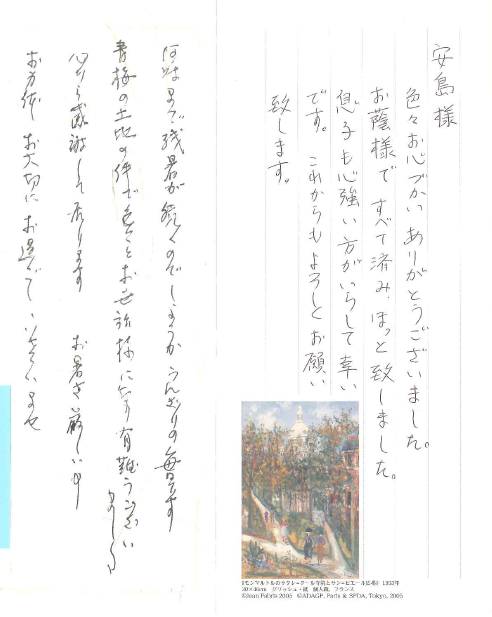 安島様
色々お心づかいありがとうございました。
お蔭様ですべて済み、ほっと致しました。
息子も心強い方がいらして幸い
です。これからもよろしくお願い
致します。
何時まで残暑が続くのでしょうか うんざりの毎日です
青梅の土地の件で色々とお世話様になり有難うござい
ました
心から感謝して居ります
お暑さ厳しい
お身体お大切にお過ごし下さいませ
『モンマルトルのサクレ=クール寺院とサン=ピエール広場』 1933年
30×46cm グワッシュ・紙 個人蔵、フランス
©Jean Fabris 2005 ©ADAGP, Paris & SPDA, Tokyo, 2005